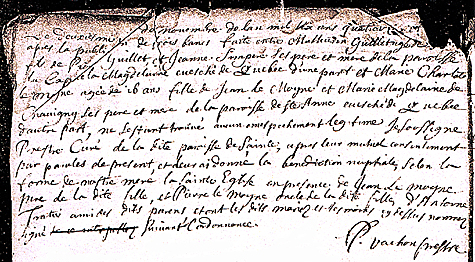 Le deuxieme de novembre de lan mil six cens quatre
apres la publi de trois bans faite entre Mathurin Guillet agé de
fils de Guillet et Jeanne St pere les pere et mere de la paroisse
du Cap la Magdelaine eveschè de Quebec d'une part et Marie Charlotte
le Moyne agée de 16 ans fille de Jean le Moyne et Marie Magdelaine de
Chavigny les pere et mere de la paroisse de Ste Anne eveschè de Quebec
d'autre part, ne sestant trouvé aucun empeschement legitime Je Soussigne
Prestre Curé de la dite paroisse de Sainte, apres leur mutuel consentement
par paroles de present, et leur ai donné la benediction nuptiale, selon la
forme de nostre mere la Sainte Eglise en presence de Jean le moyne
pere de la dite fille, et Pierre le Moyne oncle de la dite fille, d'Antoine
Trotié ami des dits parens et ont les dits mariez et tesmoins cy dessus nommez
signé suivant l'ordonnance.
P. vachon prestre